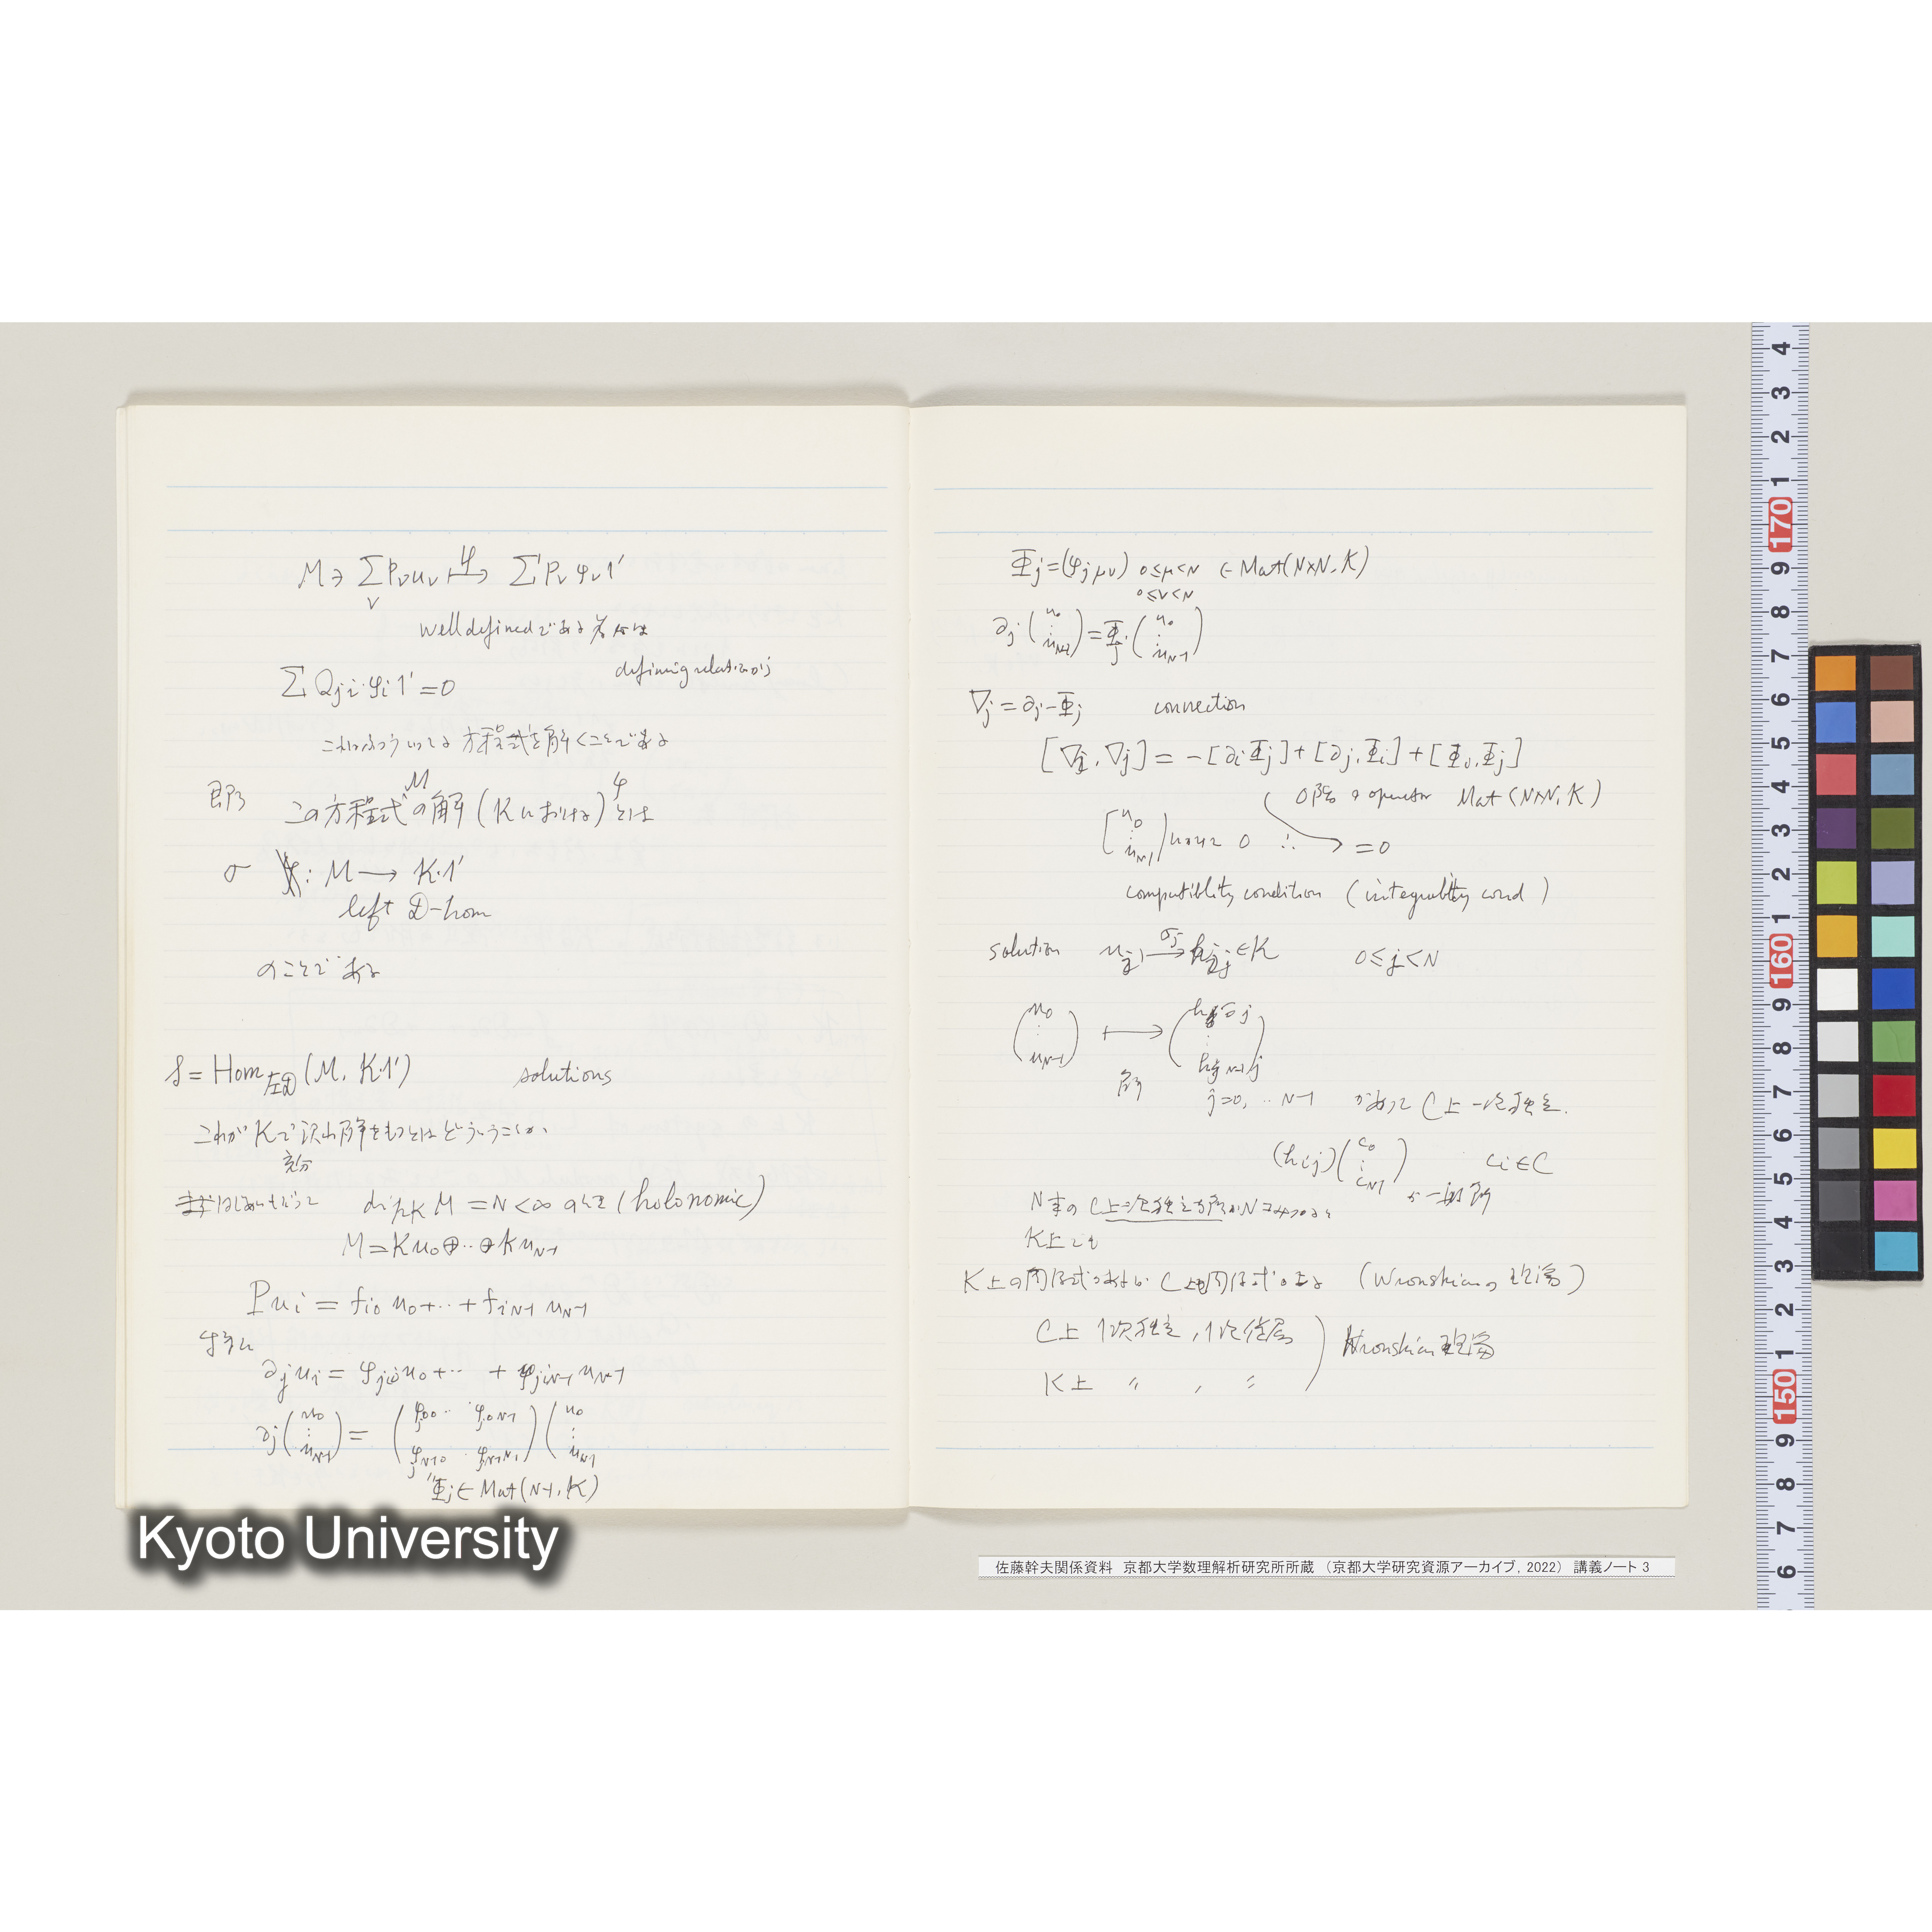 M∋ Σ_ν P_ν u_ν ↦^φ Σ' P_ν φ_ν 1'
well defined である為には
defining relation の j
Σ Q_{ji} φ_i 1' = 0
方程式を解くことである
即ち この方程式 M の解 (K における) φ とは
σ : M → K·1'
left D-hom
のことである
S = Hom_{左D} (M, K·1') solutions
これが K で沢山解をもつとはどういうことか
充分
dim_K M = N < ∞ のとき (holonomic)
M = K u_0 ⊕ ·· ⊕ K u_{N-1}
P u_i = f_{i0} u_0 + ·· + f_{iN-1} u_{N-1}
特に
∂_j u_i = φ_{ji0} u_0 + ·· + φ_{jiN-1} u_{N-1}
∂_j (u_0 ⋮ u_{N-1}) = (φ_{j00} ·· φ_{j0N-1} φ_{jN-10} · φ_{jN-1N-1}) (u_0 ⋮ u_{N-1})
" Φ_j ∈ Mat(N-1, K)
Φ_j = (φ_{jμν}) 0≤μ<N ∈ Mat(N×N, K)
0≤ν<N
∂_j (u_0 ⋮ u_{N-1}) = Φ_j (u_0 ⋮ u_{N-1})
∇_j = ∂_j − Φ_j connection
[∇_i, ∇_j] = −[∂_i Φ_j] + [∂_j, Φ_i] + [Φ_i, Φ_j]
0階の operator Mat (N×N, K)
[u_0 ⋮ u_{N-1}] 0 ∴ = 0
compatiblity condition (integrability cond)
solution u_i ↦^{σ_j} h_{ij} ∈ K 0≤j<N
(u_0 ⋮ u_{N-1}) ↦ (h_{0j} ⋮ h_{N-1 j})
解 j=0, ·· N-1 があって C上一次独立.
(h_{ij}) (c_0 ⋮ c_{N-1}) c_i ∈ C
が一般解
N 個の C上一次独立な解が N コみつかると
K上でも
K上の関係式があれば C上の関係式 (Wronskian の理論)
C上 1次独立, 1次従属
K上 〃 , 〃
Wronskian 理論
Kyoto University
佐藤幹夫関係資料 京都大学数理解析研究所所蔵 (京都大学研究資源アーカイブ, 2022) 講義ノート 3
4
3
2
1
170
9
8
7
6
5
4
3
2
1
160
9
8
7
6
5
4
3
2
1
150
9
8
7
6